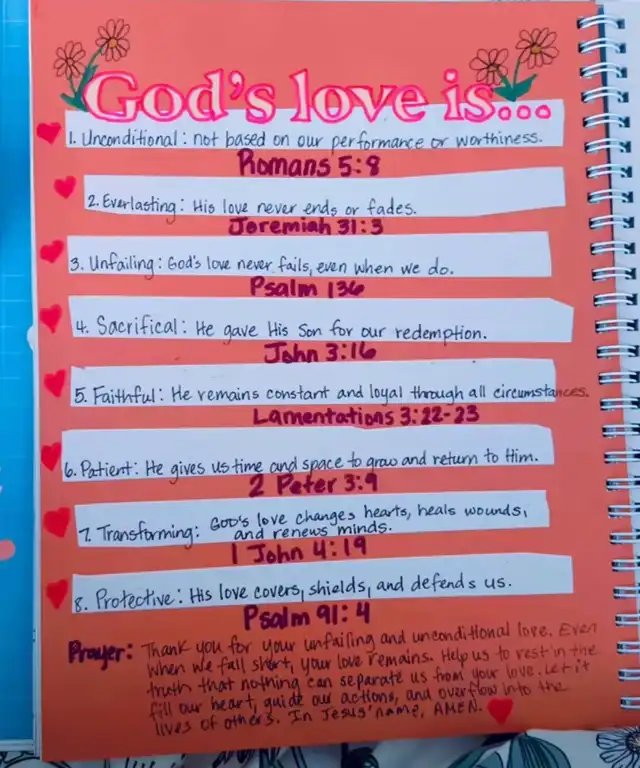 God's love is...
1. Unconditional: not based on our performance or worthiness.
Romans 5:8
2. Everlasting: His love never ends or fades.
Jeremiah 31:3
3. Unfailing: God's love never fails, even when we do.
Psalm 136
4. Sacrifical: He gave His Son for our redemption.
John 3:16
5. Faithful: He remains constant and loyal through all circumstances.
Lamentations 3:22-23
6. Patient: He gives us time and space to grow and return to Him.
2 Peter 3:9
7. Transforming: God's love changes hearts, heals wounds,
and renews minds.
1 John 4:19
8. Protective: His love covers, shields, and defends us.
Psalm 91:4
Prayer: Thank you for your unfailing and unconditional love. Even
when we fall short, your love remains. Help us to rest in the
truth that nothing can separate us from your love. Let it
fill our heart, guide our actions, and overflow into the
lives of others. In Jesus' name, AMEN.